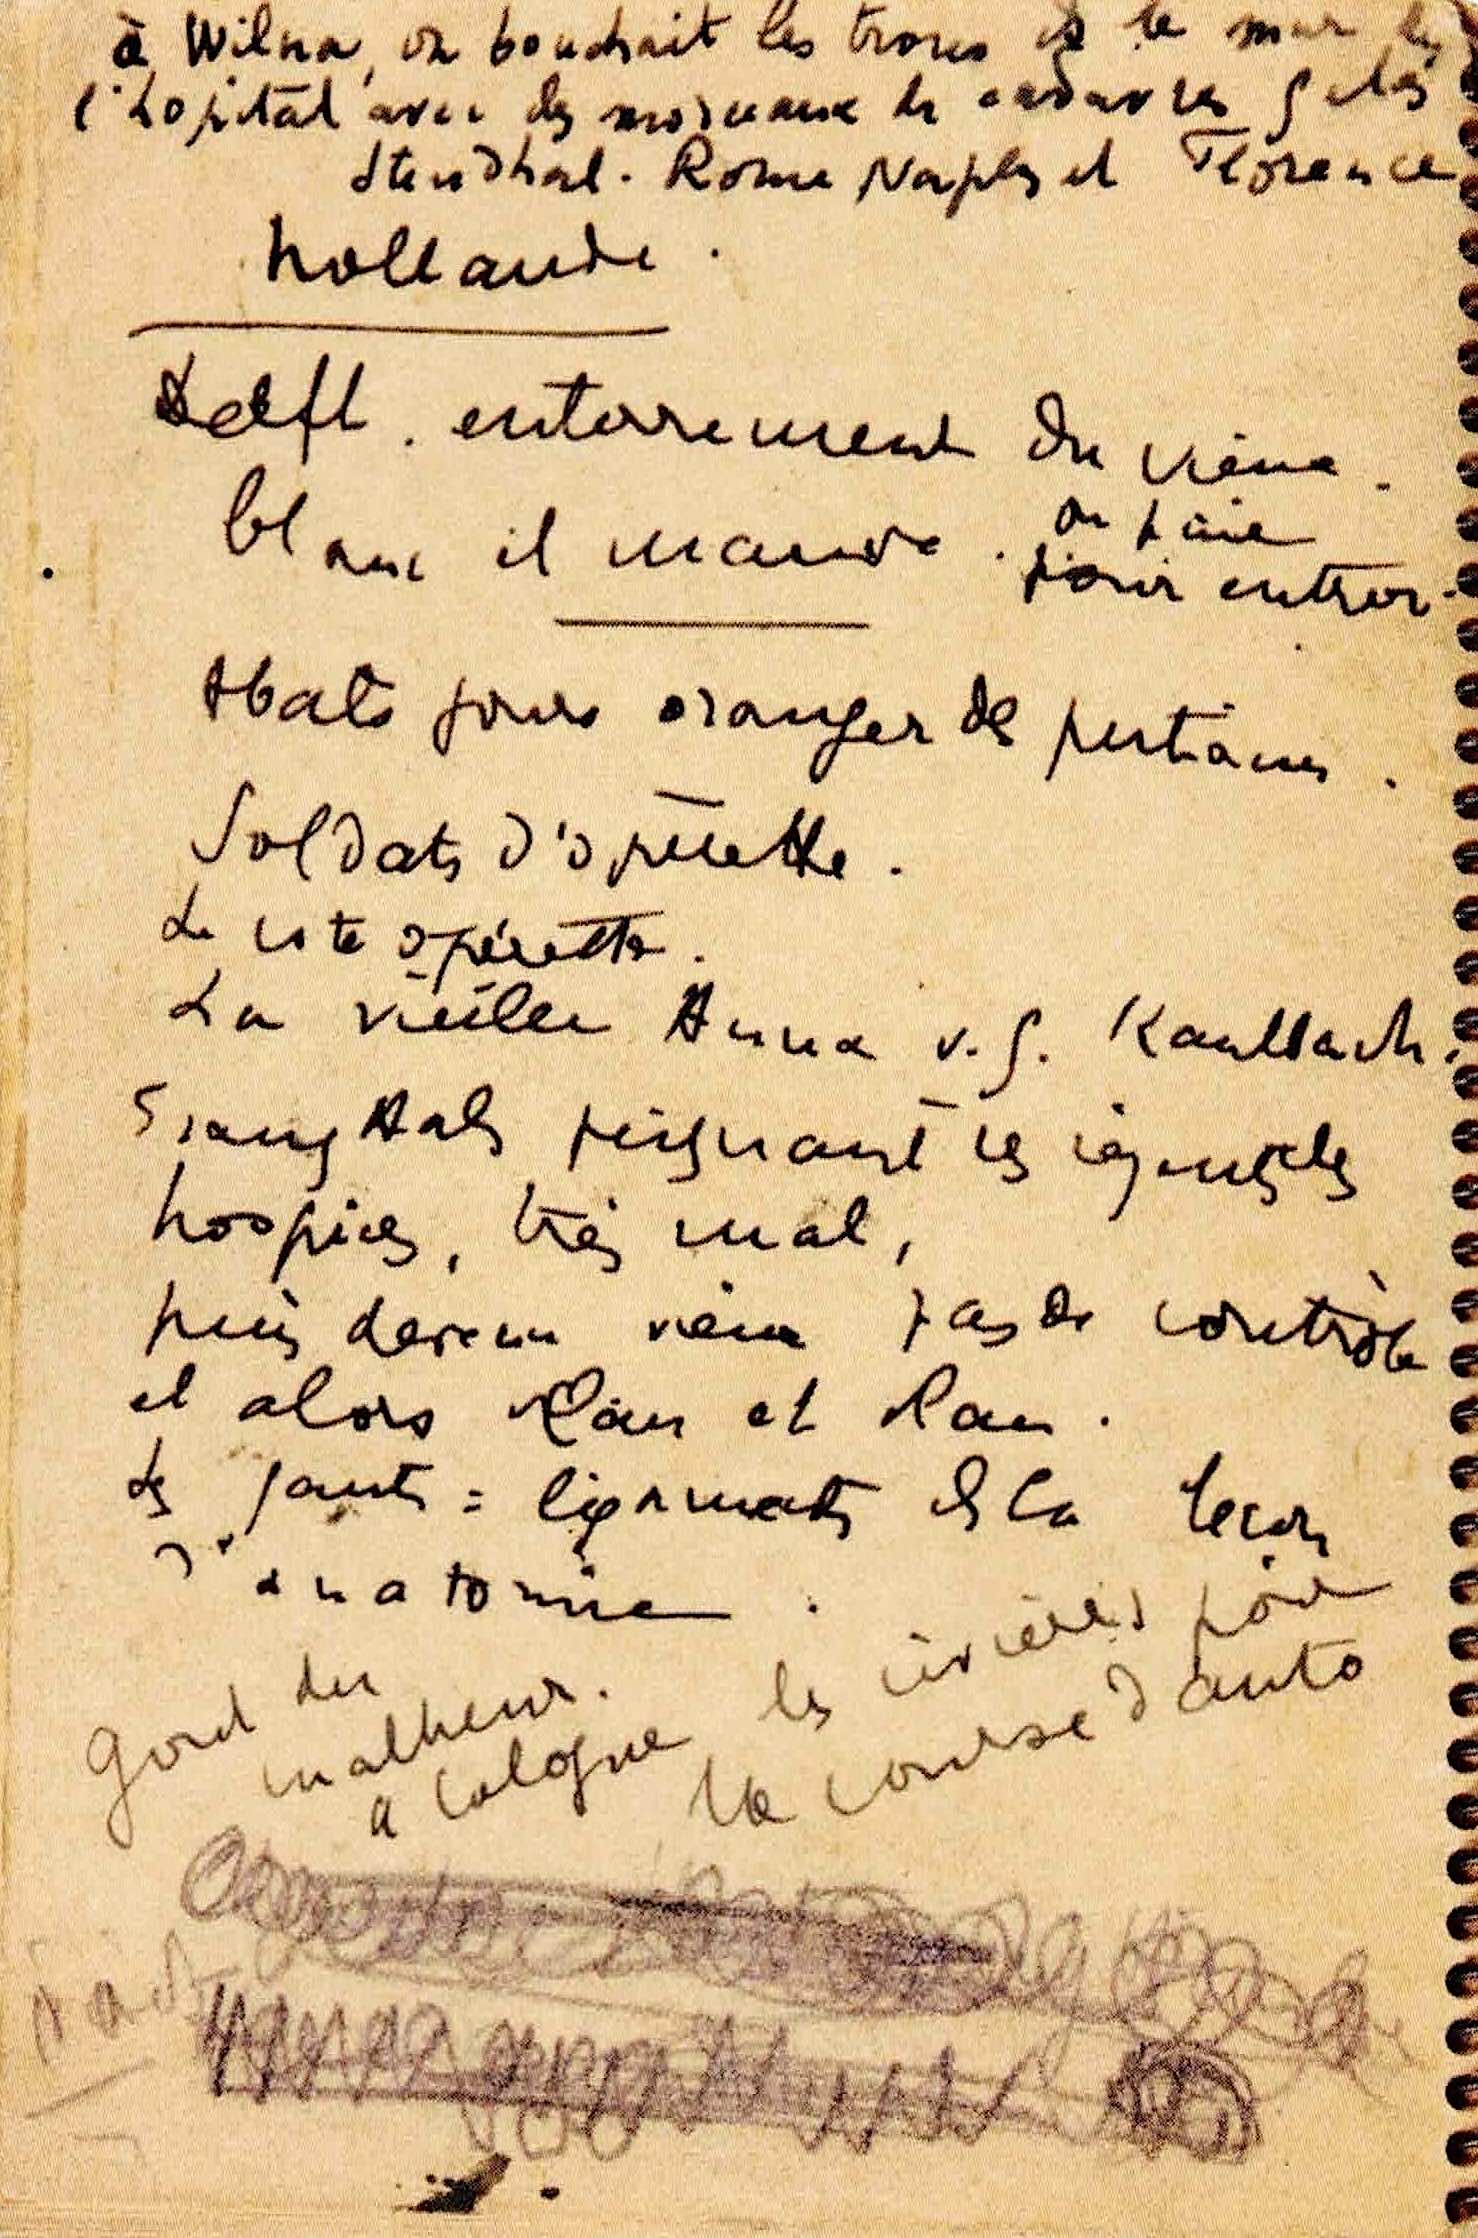 à Wilna, on bouchait les trous ds le mur de
l'hopital avec des morceaux de cadavres gelés
Stendhal. Rome Naples et Florence
hollande.
Delft. enterrement du vieux.
blanc et mauve. on paie
pour entrer.
Abats jours oranger des putains.
Soldats d'opérette.
Le coté opérette.
La vieille Anna v. g. Kaulbach.
Franz Hals peignant les régents des
hospices, très mal,
puis devenu vieux pas de contrôle
et alors Pan et Pan.
Les gants = ligaments de la leçon
d'anatomie.
gout du
malheur.
a Cologne les civières pour
la course d'auto